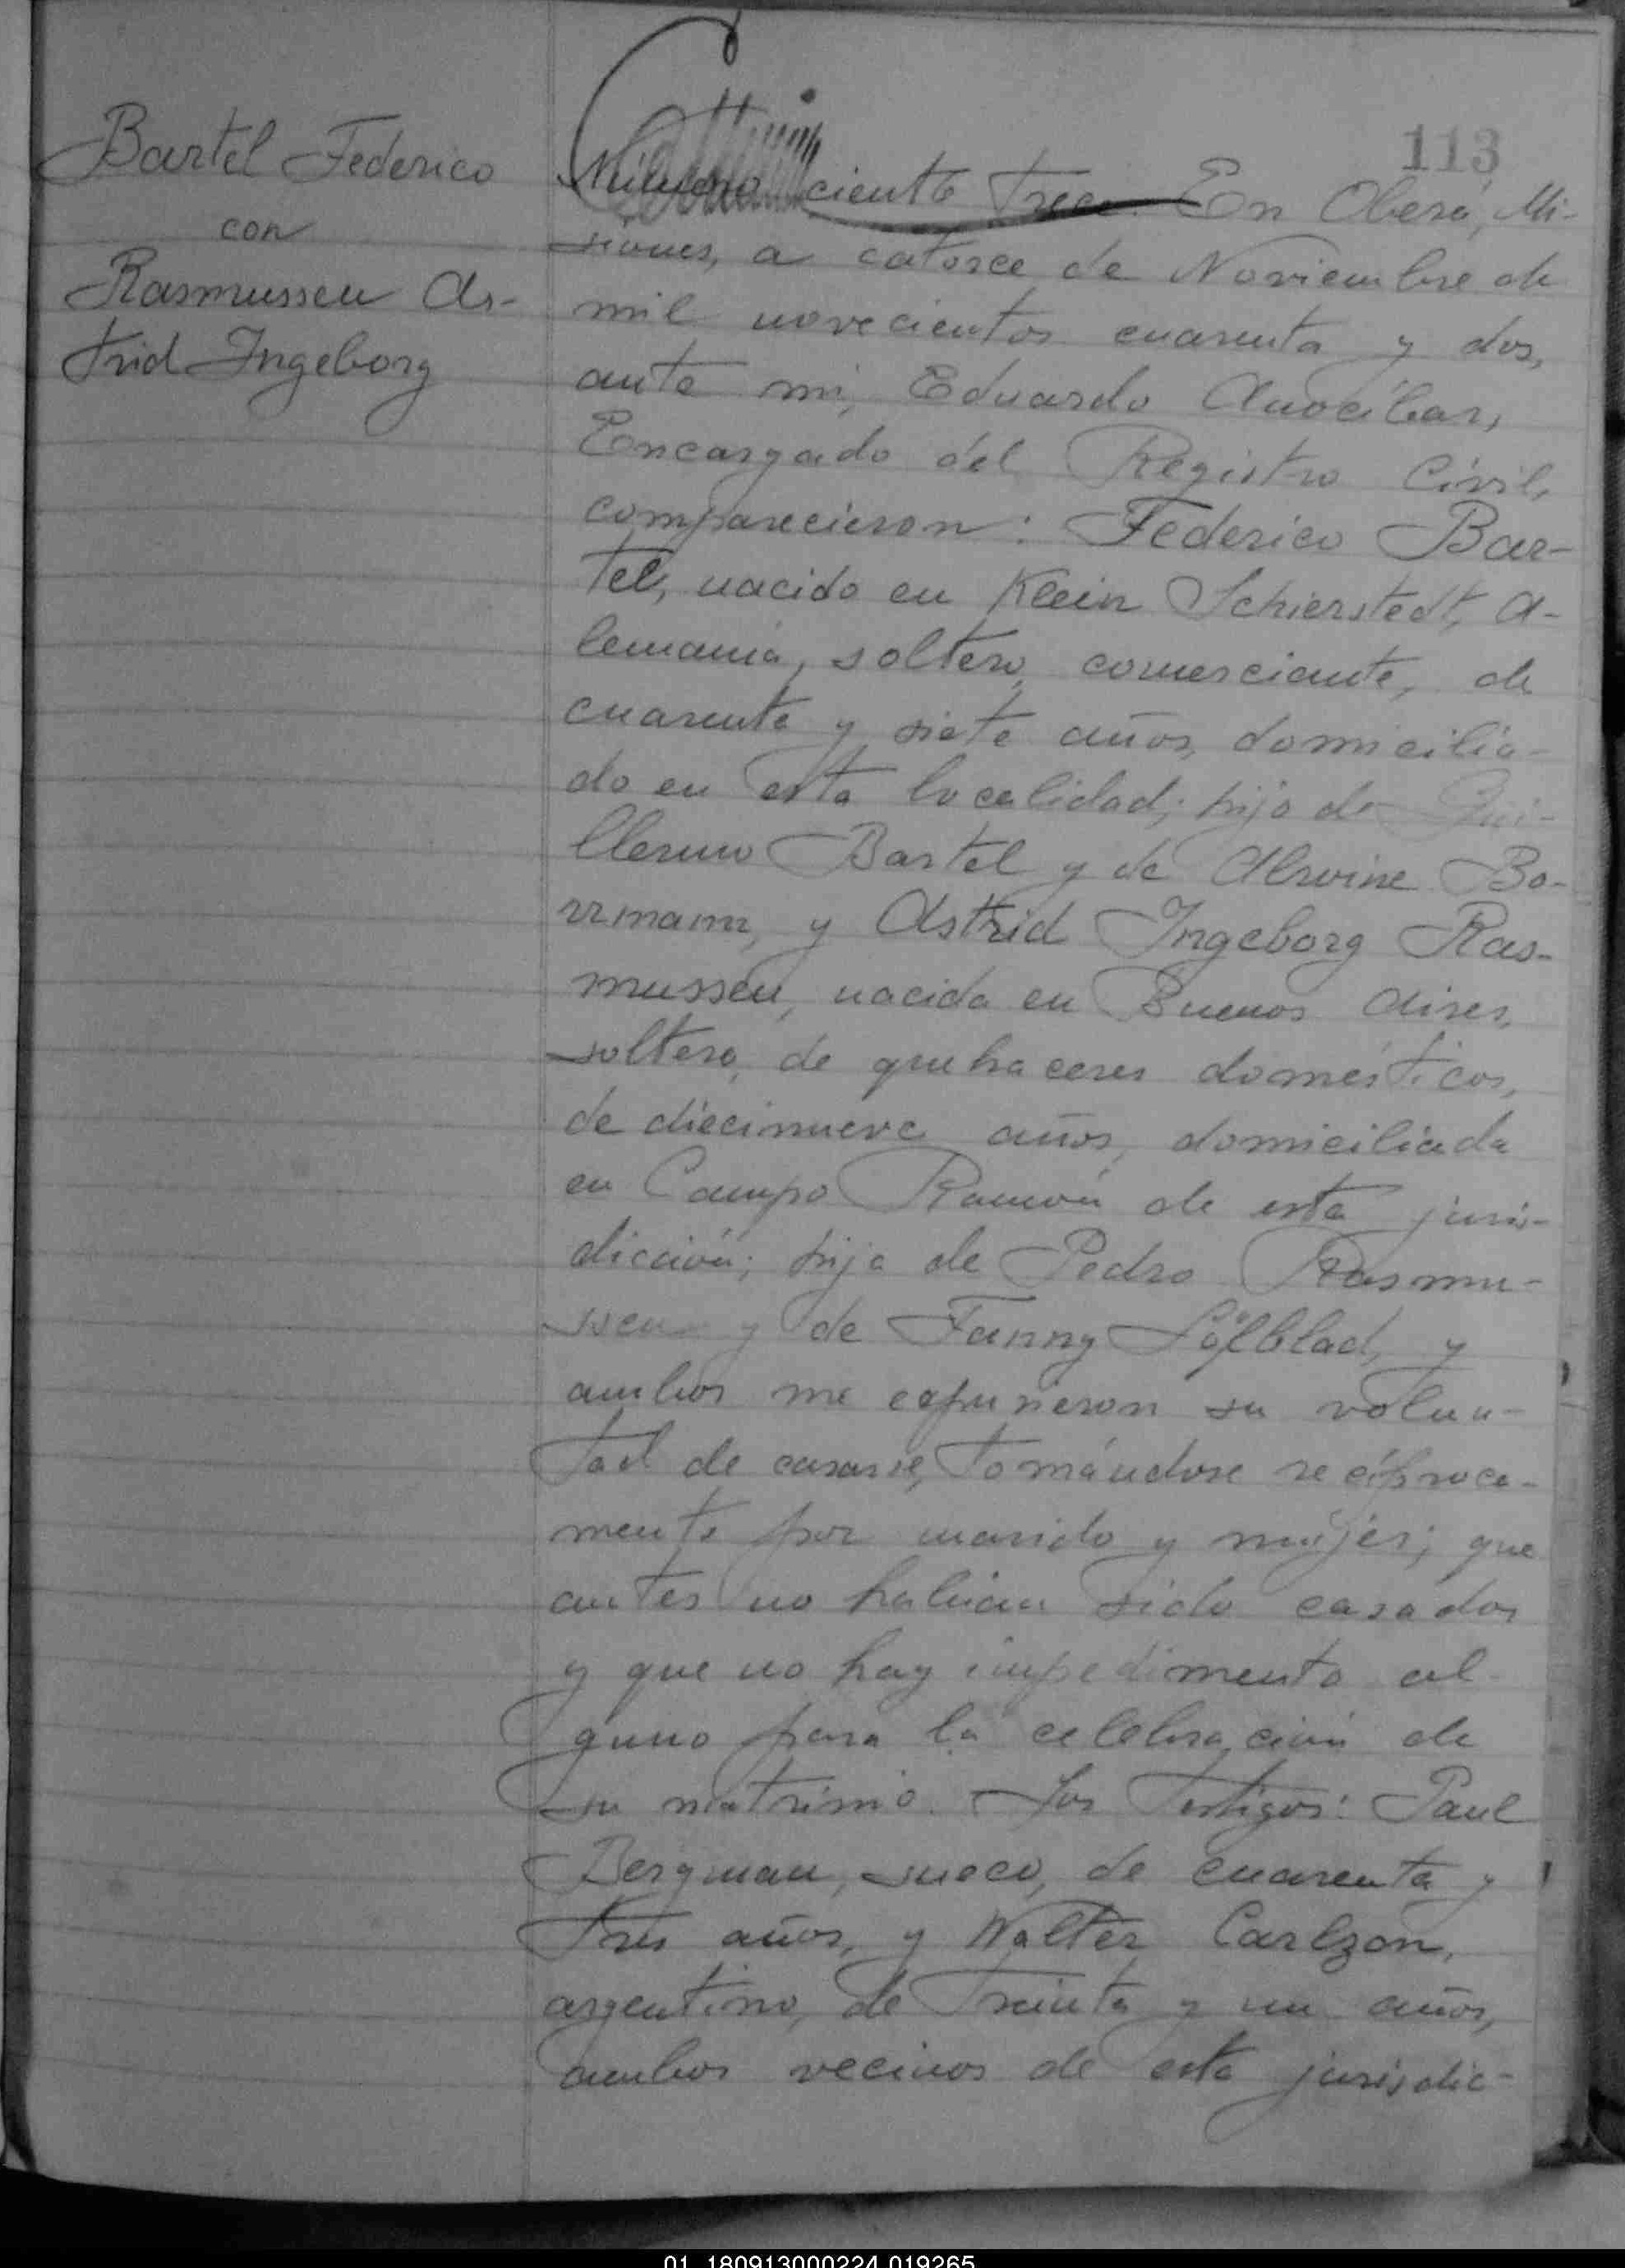 113
Bartel Federico
con
Rasmussen As-
trid Ingeborg
Número ciento trece. En Oberá, Mi-
siones, a catorce de Noviembre de
mil novecientos cuarenta y dos,
ante mí, Eduardo Anocíbar,
Encargado del Registro Civil,
comparecieron: Federico Bar-
tel, nacido en Klein Schierstedt, A-
lemania, soltero, comerciante, de
cuarenta y siete años, domicilia-
do en esta localidad; hijo de Gui-
llermo Bartel y de Alwine Bo-
rrmann, y Astrid Ingeborg Ras-
mussen, nacida en Buenos Aires,
soltera, de quehaceres domésticos,
de diecinueve años, domiciliada
en Campo Ramón de esta juris-
dicción; hija de Pedro Rasmu-
ssen y de Fanny Löfblad, y
ambos me expusieron su volun-
tad de casarse, tomándose recíproca-
mente por marido y mujer; que
antes no habían sido casados
y que no hay impedimento al-
guno para la celebración de
su matrimio. Los testigos: Paul
Bergman, sueco, de cuarenta y
tres años, y Walter Carlzon,
argentino, de treinta y un años,
ambos vecinos de esta jurisdic-
01 180913000224 019265